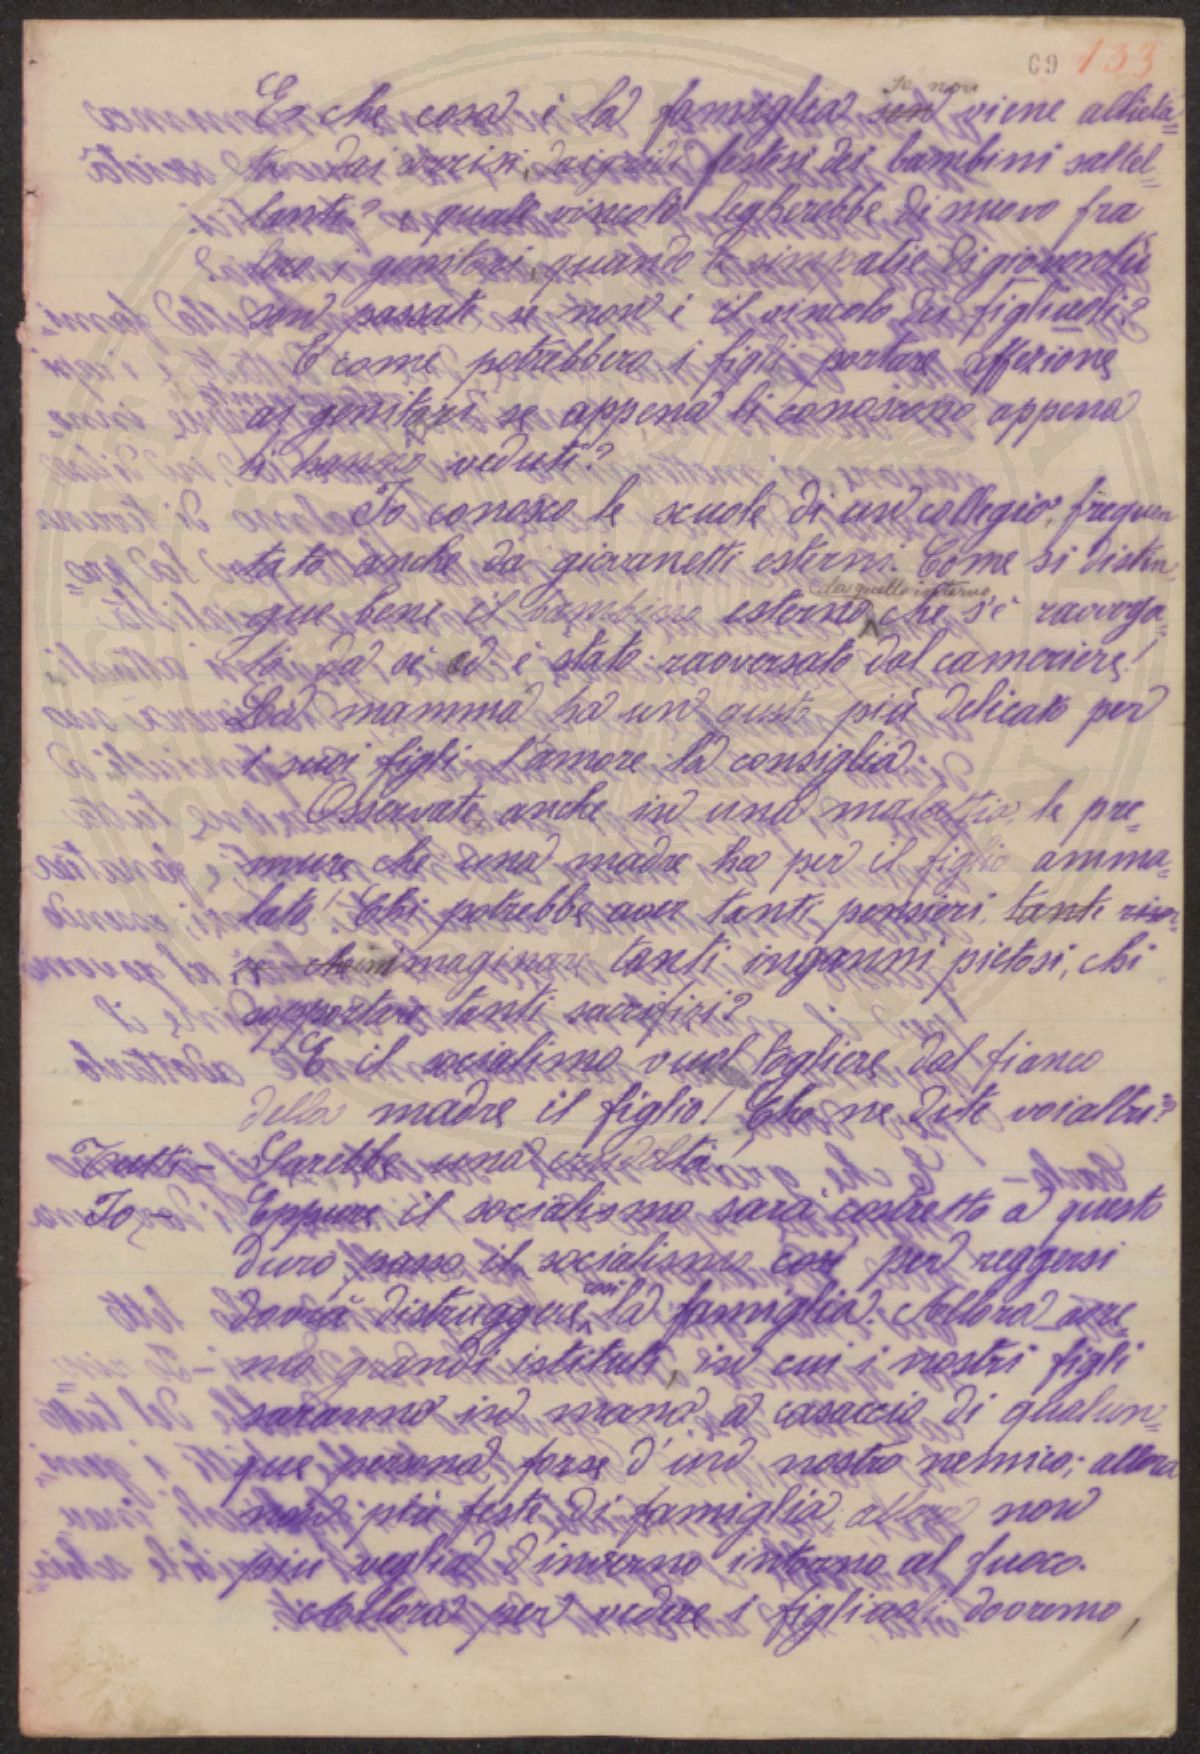 69 133
E che cosa è la famiglia se non viene allieta=
ta dai sorrisi, dai gridi festosi dei bambini saltel=
lanti? e quale vincolo legherebbe di nuovo fra
loro i genitori, quando le simpatie di gioventù
son passate se non è il vincolo dei figliuoli?
E come potrebbero i figli portare affezione
ai genitori se appena li conoscono appena
li hanno veduti?
Io conosco le scuole di un collegio, frequen
tato anche da giovanetti esterni. Come si distin
gue bene il bambino esterno da quello interno che s'è ravvia
to da sè od è stato ravversato dal cameriere!
La mamma ha un gusto più delicato per
i suoi figli l'amore la consiglia.
Osservate anche in una malattia le pre=
mure che una madre ha per il figlio amma=
lato! Chi potrebbe aver tanti pensieri, tanti
immaginare tanti inganni pietosi, chi
sopportare tanti sacrifizi?
E il socialismo vuol togliere dal fianco
della madre il figlio! Che ne dite voialtri?
Tutti - Sarebbe una crudeltà.
Io - Eppure il socialismo sarà costretto a questo
duro passo il socialismo così per reggersi
dovrà distruggere così la famiglia. Allora avre=
mo grandi istituti, in cui i nostri figli
saranno in mano a casaccio di qualun=
que persona forse d'un nostro nemico; allora
non più feste di famiglia, allora non
più veglia d'inverno intorno al fuoco.
Allora per vedere i figliuoli dovremo